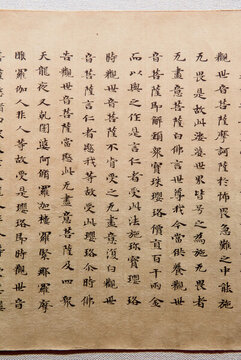 觀世音菩薩摩訶薩於怖畏急難之中能施
无畏是故此娑婆世界皆号之為施无畏者
无盡意菩薩白佛言世尊我今當供養觀世
音菩薩即解頸眾寶珠瓔珞價直百千兩金
而以與之作是言仁者受此法施珎寶瓔珞
時觀世音菩薩不肯受之无盡意復白觀世
音菩薩言仁者愍我等故受此瓔珞尒時佛
告觀世音菩薩當愍此无盡意菩薩及四眾
天龍夜叉乾闥婆阿脩羅迦樓羅緊那羅摩
睺羅伽人非人等故受是瓔珞即時觀世音